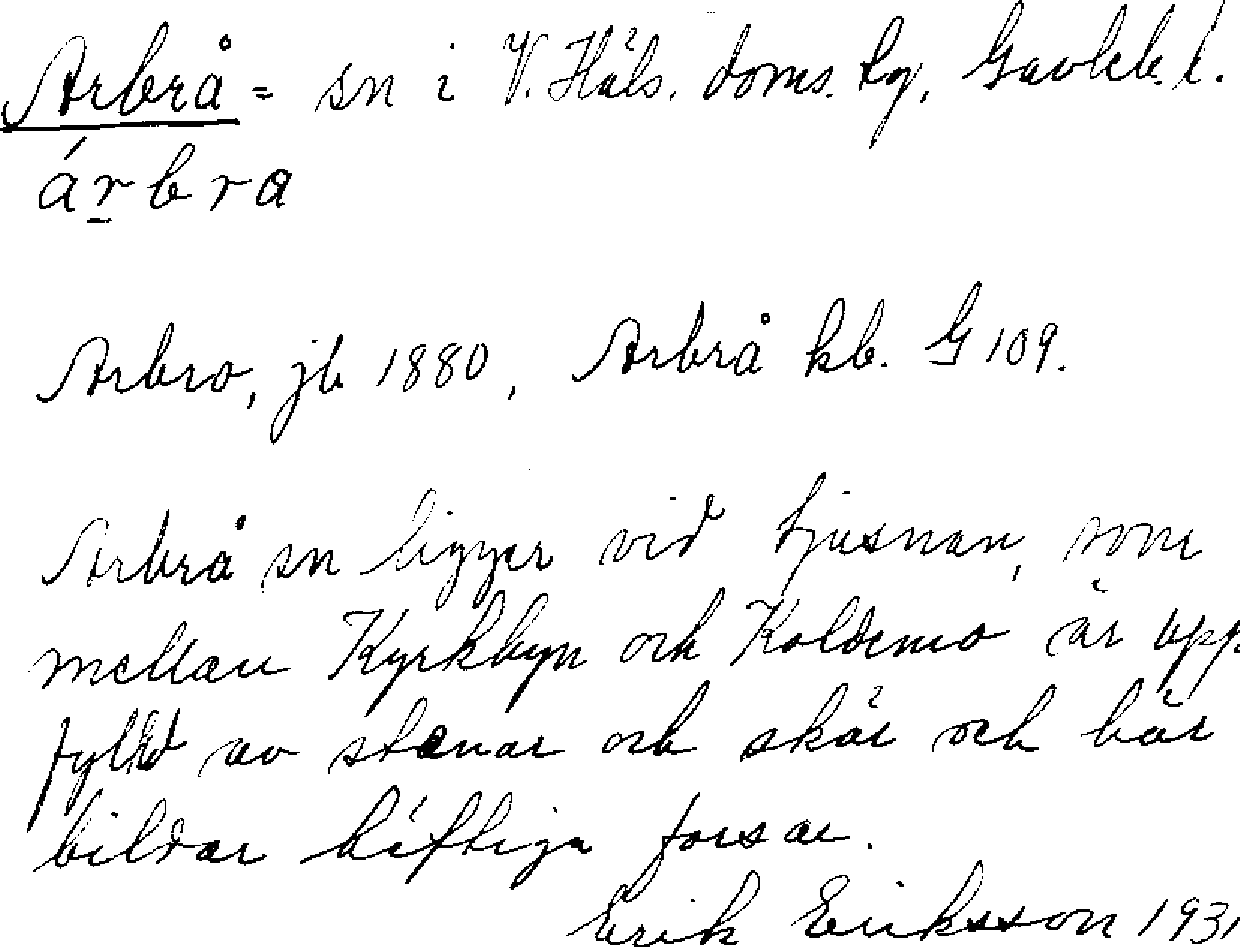 Arbrå = sn i V. Häls. doms. tg, Gävleb. l.
árbra
Arbro, jb 1880, Arbrå kb. G 109.
Arbrå sn ligger vid Ljusnan, som
mellan Kyrkbyn och Koldemo är upp
fylld av stenar och skär och här
bildar häftiga forsar.
Erik Eriksson 1931